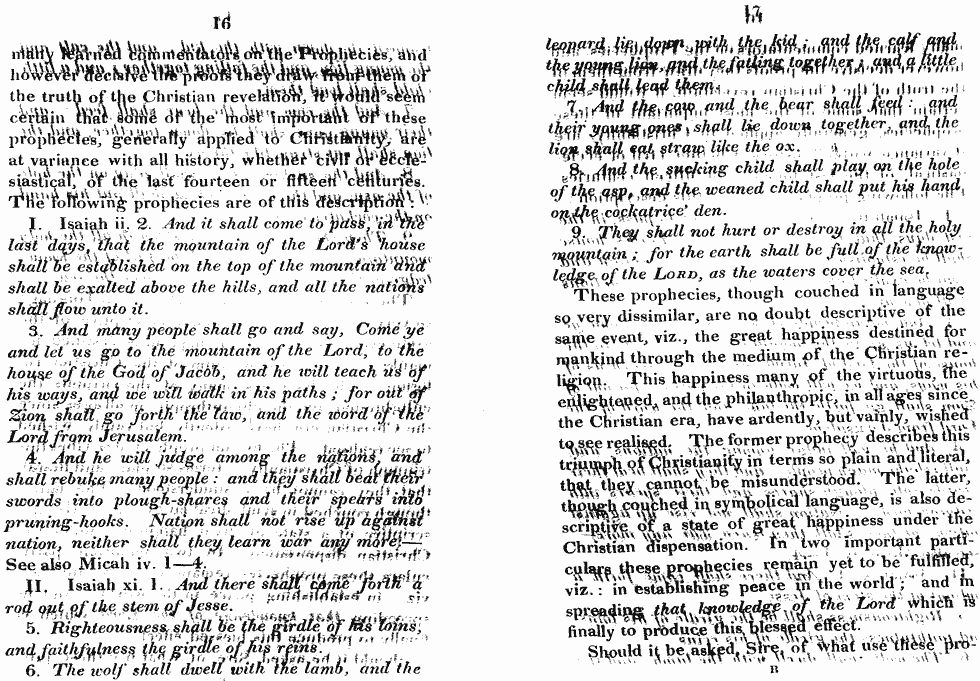 16
many learned commentators on the Prophecies, and
however decisive the proofs they draw from them of
the truth of the Christian revelation, it would seem
certain that some of the most important of these
prophecies, generally applied to Christianity, are
at variance with all history, whether civil or eccle-
siastical, of the last fourteen or fifteen centuries.
The following prophecies are of this description:
I. Isaiah ii. 2. And it shall come to pass, in the
last days, that the mountain of the Lord's house
shall be established on the top of the mountain and
shall be exalted above the hills, and all the nations
shall flow unto it.
3. And many people shall go and say, Come ye
and let us go to the mountain of the Lord, to the
house of the God of Jacob, and he will teach us of
his ways, and we will walk in his paths; for out of
Zion shall go forth the law, and the word of the
Lord from Jerusalem.
4. And he will judge among the nations, and
shall rebuke many people: and they shall beat their
swords into plough-shares and their spears into
pruning-hooks. Nation shall not rise up against
nation, neither shall they learn war any more.—
See also Micah iv. 1—4.
II. Isaiah xi. 1. And there shall come forth a
rod out of the stem of Jesse.
5. Righteousness shall be the girdle of his loins,
and faithfulness the girdle of his reins.
6. The wolf shall dwell with the lamb, and the
17
leopard lie down with the kid; and the calf and
the young lion and the fatling together; and a little
child shall lead them.
7. And the cow and the bear shall feed: and
their young ones shall lie down together, and the
lion shall eat straw like the ox.
8. And the sucking child shall play on the hole
of the asp, and the weaned child shall put his hand
on the cockatrice' den.
9. They shall not hurt or destroy in all the holy
mountain; for the earth shall be full of the know-
ledge of the LORD, as the waters cover the sea.
These prophecies, though couched in language
so very dissimilar, are no doubt descriptive of the
same event, viz., the great happiness destined for
mankind through the medium of the Christian re-
ligion. This happiness many of the virtuous, the
enlightened, and the philanthropic, in all ages since
the Christian era, have ardently, but vainly, wished
to see realised. The former prophecy describes this
triumph of Christianity in terms so plain and literal,
that they cannot be misunderstood. The latter,
though couched in symbolical language, is also de-
scriptive of a state of great happiness under the
Christian dispensation. In two important parti-
culars these prophecies remain yet to be fulfilled,
viz.: in establishing peace in the world; and in
spreading that knowledge of the Lord which is
finally to produce this blessed effect.
Should it be asked, Sire, of what use these pro-
B